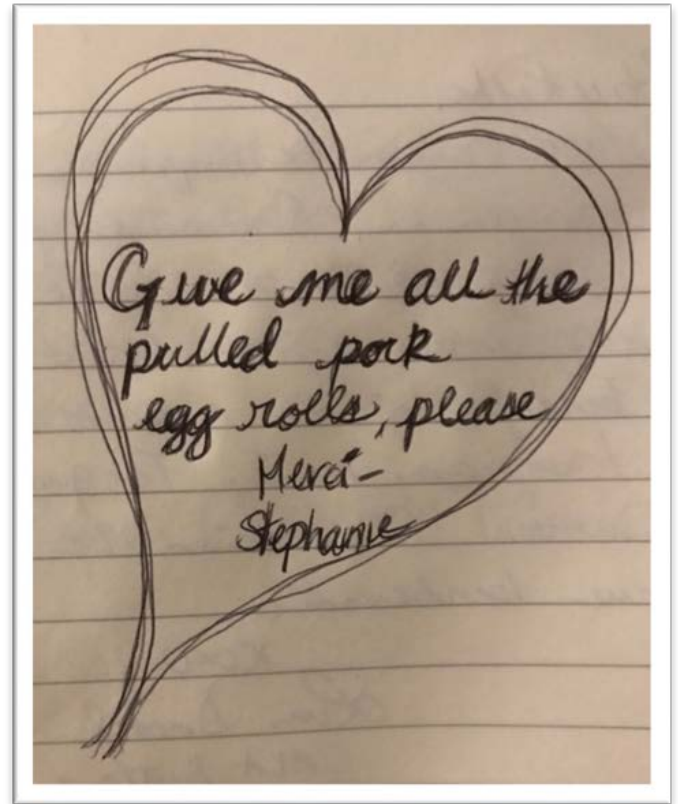 Give me all the
pulled pork
egg rolls, please
Merci-
Stephanie